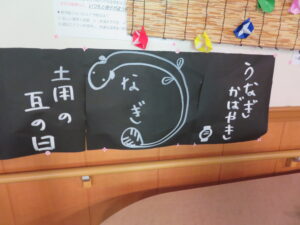 うなぎ
かばやき
なぎ
土用の
丑の日